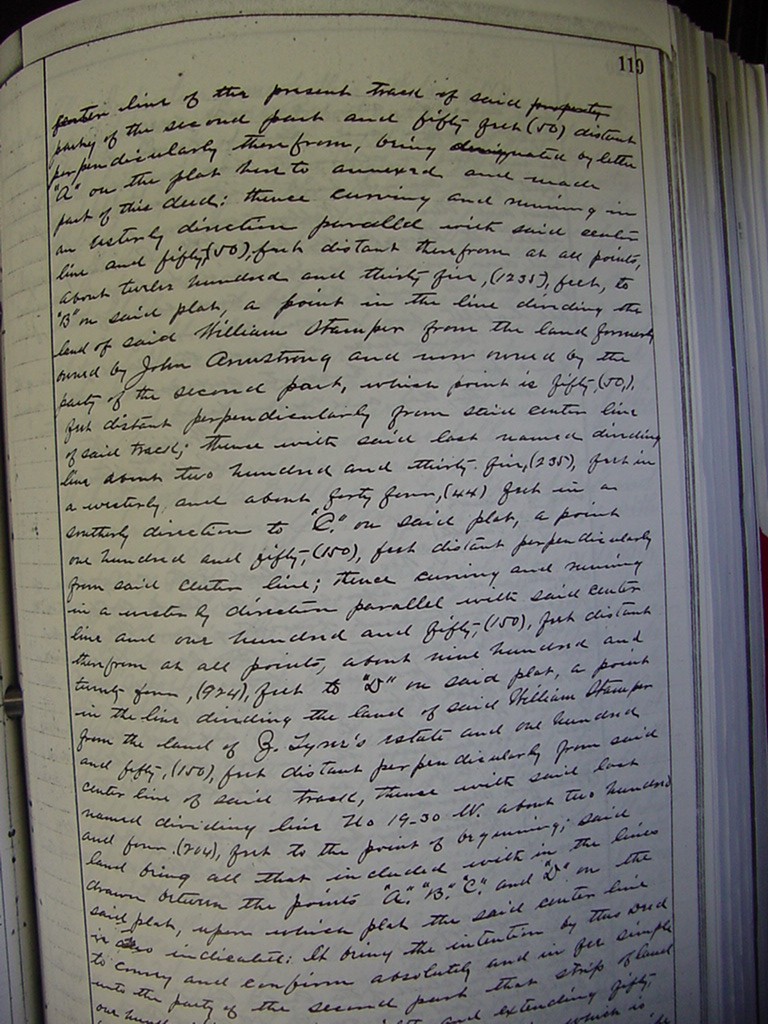 119
center line of the present track of said property
party of the second part and fifty feet (50) distant
perpendicularly therefrom, being designated by letter
"A" on the plat hereto annexed and made
part of this deed: thence curving and running in
an easterly direction parallel with said center
line and fifty, (50), feet distant therefrom at all points,
about twelve hundred and thirty five, (1235), feet, to
"B" on said plat, a point in the line dividing the
land of said William Stamper from the land formerly
owned by John Armstrong and now owned by the
party of the second part, which point is fifty, (50),
feet distant perpendicularly from said center line
of said track; thence with said last named dividing
line about two hundred and thirty-five, (235), feet in
a westerly, and about forty four, (44) feet in a
southerly direction to "C," on said plat, a point
one hundred and fifty, (150), feet distant perpendicularly
from said center line; thence curving and running
in a westerly direction parallel with said center
line and one hundred and fifty, (150), feet distant
therefrom at all points, about nine hundred and
twenty-four, (924), feet to "D" on said plat, a point
in the line dividing the land of said William Stamper
from the land of Z. Tyner's estate and one hundred
and fifty, (150), feet distant perpendicularly from said
center line of said track, thence with said last
named dividing line No 19-30 W. about two hundred
and four, (204), feet to the point of beginning; said
land being all that included with in the lines
drawn between the points "A," "B," "C," and "D" on the
said plat, upon which plat the said center line
is also indicated: It being the intention by this Deed
to convey and confirm absolutely and in fee simple
unto the party of the second part that strip of land
one and extending fifty,
which is